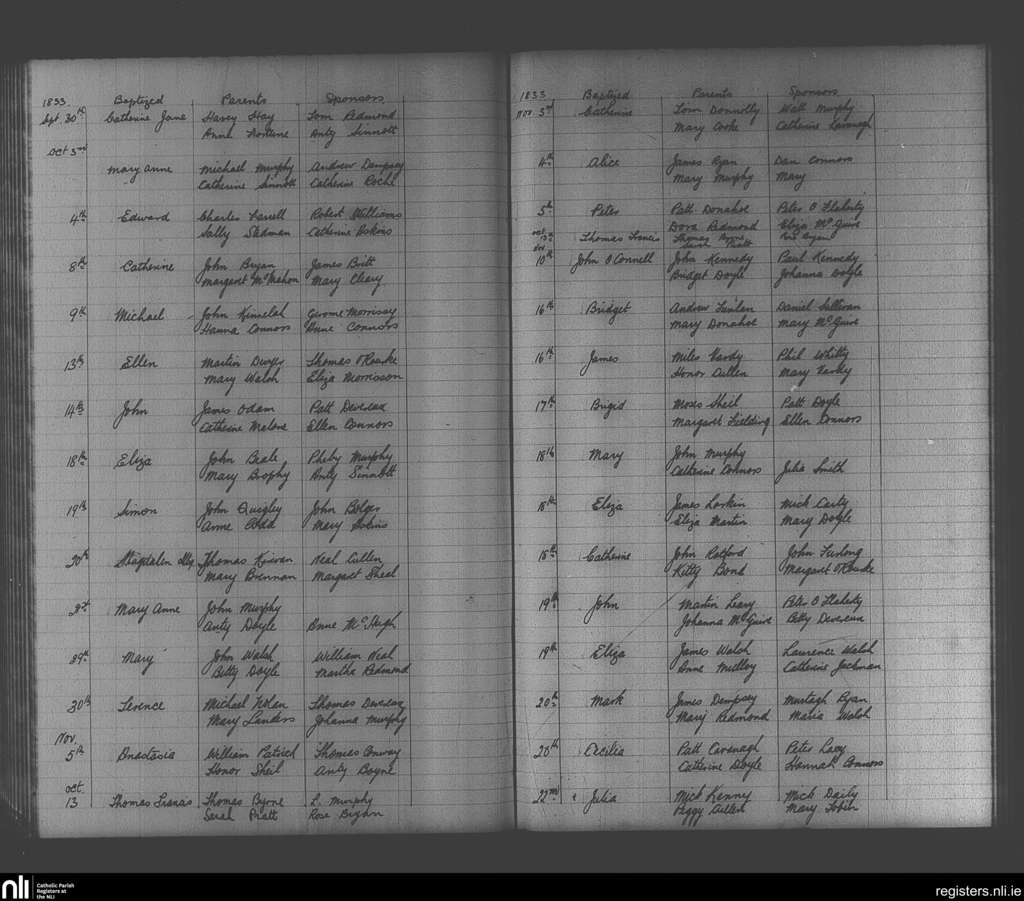 1833 Baptized Parents Sponsors
Sept. 30th Catherine Jane Harvey Hay Tom Redmond
Anne Anty Sinnott
Oct 3rd
Mary Anne Michael Murphy Andrew Dempsey
Catherine Sinnott Catherine Roche
4th Edward Charles Farrell Robert Williams
Sally Stedman Catherine Askins
8th Catherine John Bryan James Britt
Margaret McMahon Mary Cleary
9th Michael John Kinselah Gerome Morrissy
Hanna Connors Anne Connors
13th Ellen Martin Dwyer Thomas O'Rourke
Mary Walsh Eliza Morrisson
14th John James Odam Patt Devereux
Catherine Malone Ellen Connors
18th Eliza John Beale Pheby Murphy
Mary Brophy Anty Sinnott
19th Simon John Quigley John Bolger
Anne Mary
30th Magdalen Thomas Kirwan Neal Cullen
Mary Brennan Margaret Sheal
Mary Anne John Murphy
Anty Doyle Anne McHugh
29th Mary John Walsh William Neal
Betty Doyle Martha Redmond
30th Terence Michael Nolan Thomas Devereux
Mary Landers Johanna Murphy
Nov.
5th Anastasia William Patrick Thomas Conway
Honor Sheil Anty Boyne
Oct.
13 Thomas Francis Thomas Byrne L. Murphy
Sarah Pratt Rose
1833 Baptized Parents Sponsors
Nov 3rd Catherine Tom Donnolly Walt Murphy
Mary Cooke Catherine Kavanagh
4th Alice James Ryan Dan Connors
Mary Murphy Mary
5th Peter Patt Donahoe Peter O Flaherty
Dora Redmond Eliza McGuire
Oct 13th Thomas Francis Thomas Byrne
Sarah Pratt
Nov
10th John O'Connell John Kennedy Paul Kennedy
Bridget Doyle Johanna Doyle
16th Bridget Andrew Daniel Sullivan
Mary Donahoe Mary McGuire
16th James Miles Vardy Phil Whitty
Honor Cullen Mary Varley
17th Brigid Moses Sheil Patt Doyle
Margaret Fielding Ellen Connors
18th Mary John Murphy
Catherine Connors Julia Smith
18th Eliza James Larkin Mick Carty
Eliza Martin Mary Doyle
18th Catherine John Ratford John Furlong
Kitty Bond Margaret O'Rourke
19th John Martin Leary Peter O Flaherty
Johanna McGuire Betty Devereux
19th Eliza James Walsh Laurence Walsh
Anne Catherine Jackman
20th Mark James Dempsey Murtagh Ryan
Mary Redmond Maria Walsh
20th Cecilia Patt Cavanagh Peter Lacy
Catherine Doyle Hannah Connors
22nd Julia Mick Kenney Mick Daily
Peggy Mary Tobin
nli Catholic Parish
Registers at
the NLI
registers.nli.ie